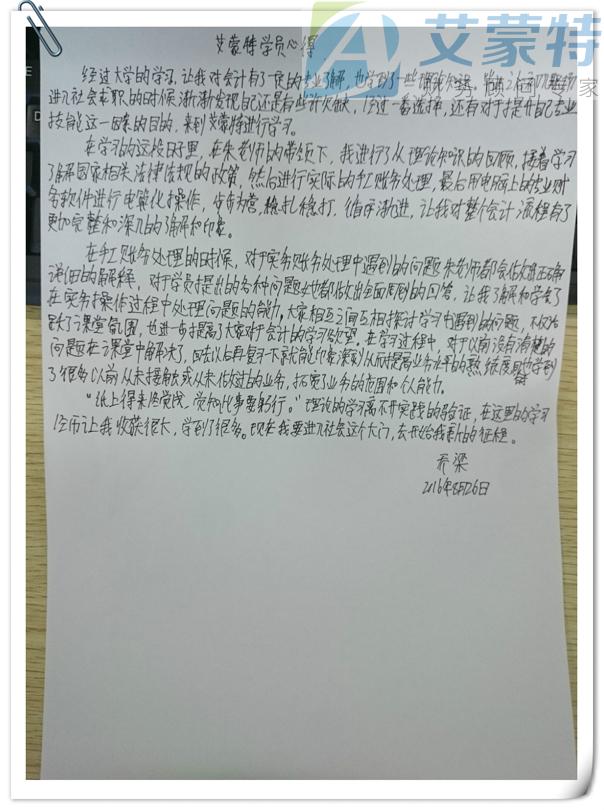 艾蒙特
财务顾问专家
艾蒙特学员心得
经过大学的学习，让我对会计有了一定的专业了解，也学到了一些理论知识。
进入社会求职的时候，渐渐发现自己还是有些许欠缺，经过一番选择，还有对于提升自己专业
技能这一因素的目的，来到艾蒙特进行学习。
在学习的这段日子里，在朱老师的带领下，我进行了从理论知识的回顾，接着学习
了解国家相关法律法规的政策，然后进行实际的手工账务处理，最后用电脑上的专业财
务软件进行电算化操作，步步为营，稳扎稳打，循序渐进，让我对整个会计流程有了
更加完整和深入的了解和印象。
在手工账务处理的时候，对于实务账务处理中遇到的问题朱老师都会做出正确
详细的解释，对于学员提出的各种问题她都做出全面周到的回答，让我了解和学会了
在实务操作过程中处理问题的能力。大家相互之间互相探讨学习中遇到的问题，不仅活
跃了课堂氛围，也进一步提高了大家对于会计的学习欲望。在学习过程中，对于以前没有清楚的
问题在课堂中解决了，回去以后再复习下就能印象深刻从而提高业务水平的熟练度，也学到
了很多以前从未接触或从未做过的业务，拓宽了业务的范围和个人能力。
“纸上得来终觉浅，觉知此事要躬行。”理论的学习离不开实践的验证，在这里的学习
经历让我收获很大，学到了很多。现在我要进入社会这个大门，去开始我新的征程。
乔梁
2016年8月26日